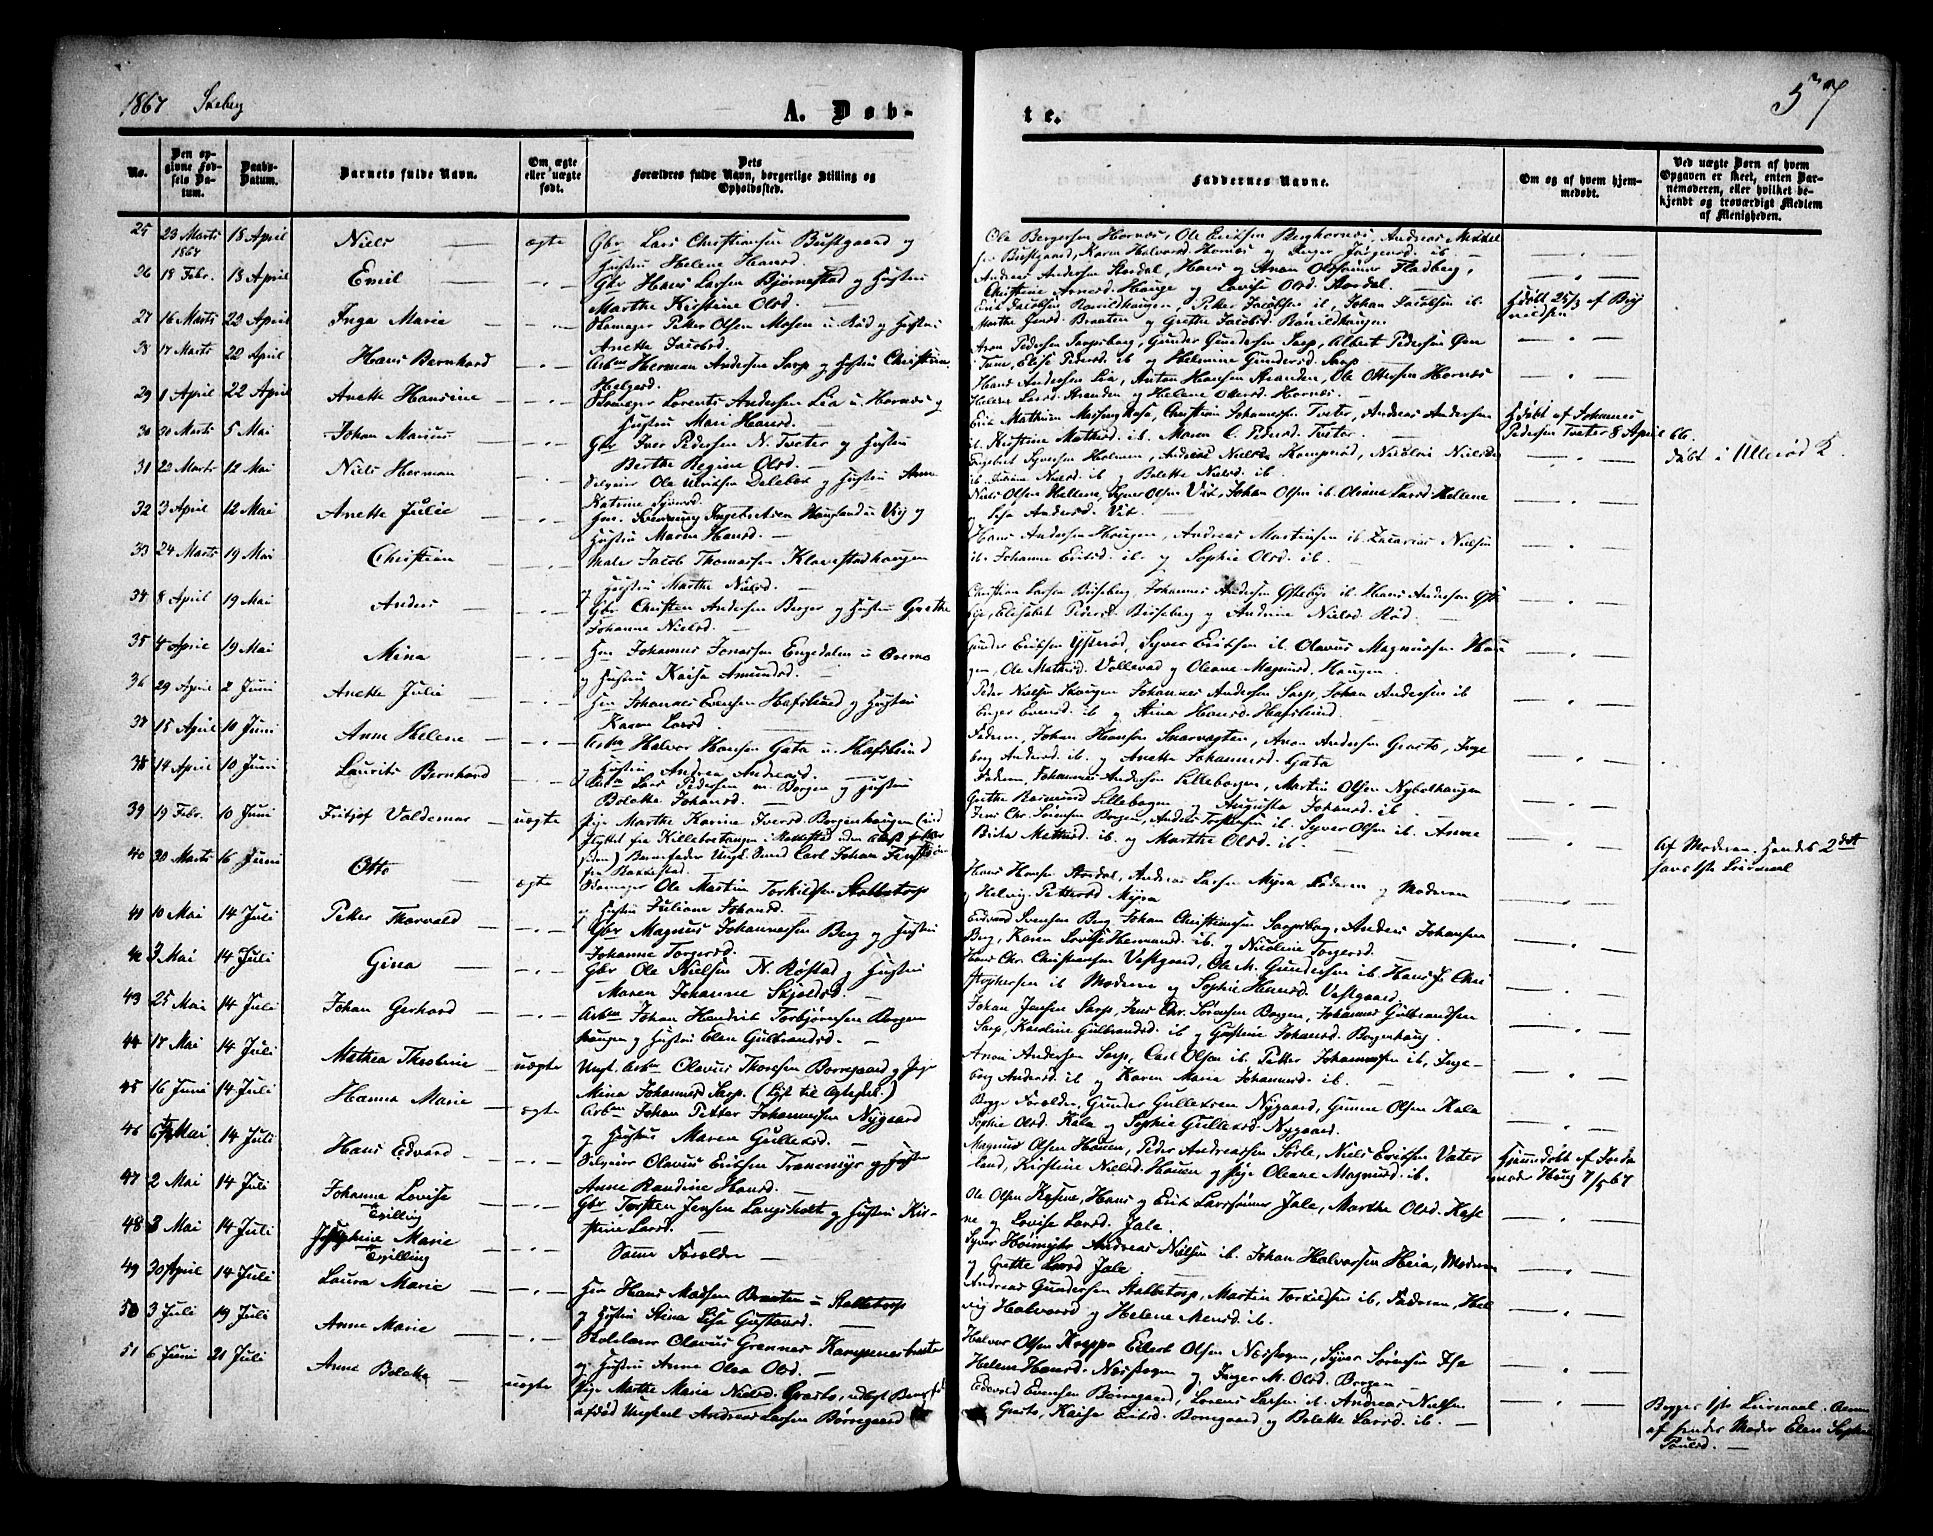 1867 Skeberg
A. Døb-
te.
57
No.
Den op-
givne Fød-
sels Da-
tum.
Daabs-
Datum.
Barnets fulde Navn.
Om ægte
eller uægte
født.
Dets
Forældres fulde Navn, borgerlige Stilling og
Opholdssted.
Faddernes Navne.
Om og af hvem hjem-
medøbt.
Ved uægte Børn af hvem
Opgaven er skeet, enten Bar-
nemoderen, eller hvilket be-
kjendt og troværdigt Medlem
af Menigheden.
25 23 Marts 1867 18 April Niels — ægte Gbr Lars Christiansen Bustgaard og
Hustru Helene Hansd. —
Ole Bergersen Hornæs, Ole Eriksen Berghornæs, Andreas
Bustgaard, Karen Halvorsd. Hornæs og Inger Jørgensd. ib.
26 18 Febr. 18 April Emil — Gbr Hans Larsen Bjørnestad og Hustru
Marthe Kirstine Olsd. —
Andreas Andersen Stordal, Hans og Anon Olssønner Fladberg,
Christine Arnesd. Hauge og Lovise Olsd. Stordal.
27 16 Marts 22 April Inga Marie — Skomager Peter Olsen Mosen u. Rød og Hustru
Anette Jacobsd.
Erik Jacobsen Rønildhaugen, Peter Jacobsen ib, Johan Jacobsen ib.
Marthe Jensd. Braaten og Grethe Jacobsd. Rønildhaugen.
Hjdøbt 25/3 af
28 17 Marts 20 April Hans Bernhard Arbm Herman Andersen Sarp og Hustru Christine
Helgesd.
Aron Pedersen Sarpsborg, Gunder Gundersen Sarp, Albert Pedersen
Tune, Elise Pedersd. ib og Helmine Gundersd. Sarp
29 1 April 22 April Anette Hansine — Skomager Lorents Andersen Lia u. Hornæs og
Hustru Mari Hansd. —
Hans Andersen Lia, Anton Hansen Stranden, Ole Ottersen Hornæs
Helene Larsd. Stranden og Helene Ottersd. Hornæs.
30 30 Marts 5 Mai Johan Marius — Gbr Iver Pedersen N. Tveter og Hustru
Berthe Regine Olsd. —
Christian Johannesen Tveter, Andreas Andersen
ib. Kirstine Mathisd. ib. Maren O. Pedersd. Tveter.
Hjdøbt af Johannes
Pedersen Tveter 8 April 66.
31 22 Marts 12 Mai Niels Herman — Ole Ulriksen Dalebet og Hustru Anne
Katrine
Engebret Syversen Holmen, Andreas Nielsen Kamperød, Nicolai Nielsen
ib. Juliane Nielsd. ib og Bolette Nielsd. ib.
døbt i Ullerød K.
32 3 April 12 Mai Anette Julie — Hm. Svenning Ingebretsen Haugland u. Visj og
Hustru Maren Hansd. —
Niels Olsen Hellene, Syver Olsen Vit, Johan Olsen ib. Oleane Larsd. Hellene
Lisa Andersd. Vit. —
33 24 Marts 19 Mai Christian — Maler Jacob Thomassen Klavestadhaugen
og Hustru Marthe Nielsd. —
Hans Andersen Haugen, Andreas Martinsen ib. Zacarias Nielsen
ib. Johanne Eriksd. ib. og Sophie Olsd. ib.
34 8 April 19 Mai Anders — Gbr Christen Andersen Berger og Hustru Grethe
Johanne Nielsd. —
Christian Larsen Bissberg, Johannes Andersen Ystebye ib. Hans Andersen Yste
bye, Elisabet Pedersd. Bissberg og Andrine Nielsd. Rød.
35 4 April 19 Mai Mina — Hm Johannes Jonassen Engedalen u
og Hustru Kaisa Amundsd. —
Gunder Eriksen Ysterød, Syver Eriksen ib. Olavus Magnussen Hau
gen, Ole Mathisd. Vollevad og Oleane Magnusd. Haugen.
36 29 April 2 Juni Anette Julie — Hm Johannes Evensen Hafslund og Hustru
Karen Larsd
Peder Nielsen Skaugen, Johannes Andersen Sarp, Johan Andersen ib
Inger Evensd. ib og Stina Hansd. Hafslund.
37 15 April 10 Juni Anne Helene — Arbm Halvor Hansen Gata u. Hafslund
og Hustru Andrea Andreasd. —
Faderen, Johan Hansen Snarvagten, Aron Andersen Grasto, Inge
borg Andersd. ib. og Anette Johannesd. Gata
38 14 April 10 Juni Laurits Bernhard — Arbm Lars Pedersen m. Borgen og Hustru
Bolette Johansd. —
Faderen, Johannes Andersen Lillebogen, Martin Olsen Nybolhaugen
Grethe Rasmusd. Lillebogen og Augusta Johansd. ib.
39 19 Febr. 10 Juni Fritjof Valdemar — uægte Pige Marthe Karine Iversd. Borgenhaugen (ind
flyttet fra Killebotangen i uden
siden) Barnefader Ungk. Svend Carl Johan
fra Bakkestad
Jens Chr. Sørensen Borgen, Anders Torstensen ib. Syver Olsen ib. Anne
Birthe Mathisd. ib. og Marthe Olsd. ib. —
Af Moderen. Hendes 2det
Leiermaal
40 30 Marts 16 Juni Otto ægte Skomager Ole Martin Torkildsen Stabbetorp
og Hustru Juliane Johansd. —
Hans Hansen Stordal, Andreas Larsen Myra, Faderen og Moderen
og Helvig Pettersd. Myra
41 10 Mai 14 Juli Peter Thorvald — Gbr Magnus Johannessen Berg og Hustru
Johanne Torgersd. —
Edvard Svensen Berg, Johan Christiansen Sarpsborg, Anders Johansen
Berg, Karen Lovise Hermansd. ib. og Nicoline Torgersd.
42 3 Mai 14 Juli Gina — Gbr Ole Nielsen N. Røstad og Hustru
Maren Johanne Skjoldsd. —
Hans Chr. Christiansen Vestgaard, Ole M. Gundersen ib. Hans J. Chri
stophersen ib Moderen og Sophie Hansd. Vestgaard
43 25 Mai 14 Juli Johan Gerhard — Arbm Johan Hendrik Torbjørnsen Borgen
haugen og Hustru Elen Gulbrandsd. —
Johan Jensen Sarp, Jens Chr. Sørensen Borgen, Johannes Gulbrandsen
Sarp, Karoline Gulbrandsd. ib og Gustine Johansd. Borgenhaug.
44 17 Mai 14 Juli Mathea Theoline — uægte Ungk. Arbm Olavus Thoresen Borregaard og Pige
Mina Johannesd. Sarp. (Lyst til Ægteskab.)
Anon Andersen Sarp, Carl Olsen ib. Petter Johannessen ib. Inge-
borg Andersd. ib og Karen Maria Johannesd. ib.
45 16 Juni 14 Juli Hanna Marie — ægte Arbm Johan Petter Johannesen Nygaard
og Hustru Maren Gulleksd. —
Begge Forældre, Gunder Gulleksen Nygaard, Gunne Olsen Kala
Sophie Olsd. Kala og Sophie Gulleksd. Nygaard.
46 6 Mai 14 Juli Hans Edvard — Olavus Eriksen Tranemyr og Hustru
Anne Randine Hansd. —
Magnus Olsen Hauen, Peder Andreassen Sørle, Niels Eriksen Vater
land, Kirstine Nielsd. Hauen og Pige Oleane Magnusd. ib.
Hjemmedøbt af Jorde
moder Haug 7/5 67
47 2 Mai 14 Juli Johanne Lovise
Tvilling — Gbr Torsten Jensen Langsholt og Hustru Kir-
stine Larsd. —
Ole Olsen Kasene, Hans og Erik Larssønner Jale, Marthe Olsd. Kase
ne og Lovise Larsd. Jale.
48 3 Mai 14 Juli Josephine Marie
Tvilling — Samme Forældre —
Syver Høimyhr, Andreas Nielsen ib. Johan Halvorsen Heia, Moderen
og Grethe Larsd Jale.
49 30 April 14 Juli Laura Marie — Hm Hans Madsen Braaten u Stabbetorp
og Hustru Stina Lisa Gustavsd. —
Andreas Gundersen Stabbetorp, Martin Torkildsen ib., Faderen, Hel
vig Halvorsd og Helene Mensd. ib.
50 3 Juli 19 Juli Anne Marie — Skolelærer Olavus Grønnes
og Hustru Anne Olea Olsd. —
Halvor Olsen Kroppa, Eilert Olsen Næsskogen, Syver Sørensen Isa
Helene Hansd. Næsskogen og Inger M. Olsd. Borgen
51 6 Juni 21 Juli Anne Bolette — uægte Pige Marthe Maria Nielsd. Grasto, udlagt Barnef.
afdød Ungkarl Andreas Larsen Børregaard
Edevold Evensen Børregaard, Lorens Larsen ib. Andreas Nielsen
Grasto, Kaisa Eriksd. Borregaard og Bolette Larsd. ib. —
Begges 1ste Leiermaal.
af hendes Moder Elen Sophie
Poulsd. —